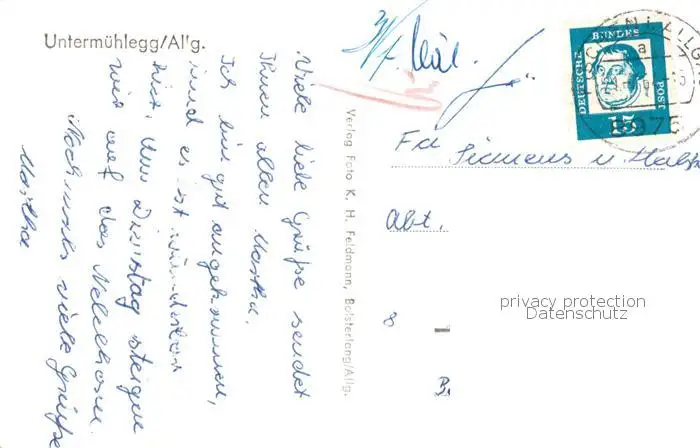 Untermühlegg/All'g.
Viele liebe Grüße sendet
Ihnen allen Martha.
Ich bin gut angekommen,
und es ist wunderbar
hier. Am Dienstag steigen
wir auf das Nebelhorn.
Nochmals viele Grüße
Martha
Verlag Foto K. H. Feldmann, Bolsterlang/Allg.
DEUTSCHE BUNDES POST
15
a
8975
Fa Siemens u. Halske
Abt.
8
privacy protection
Datenschutz